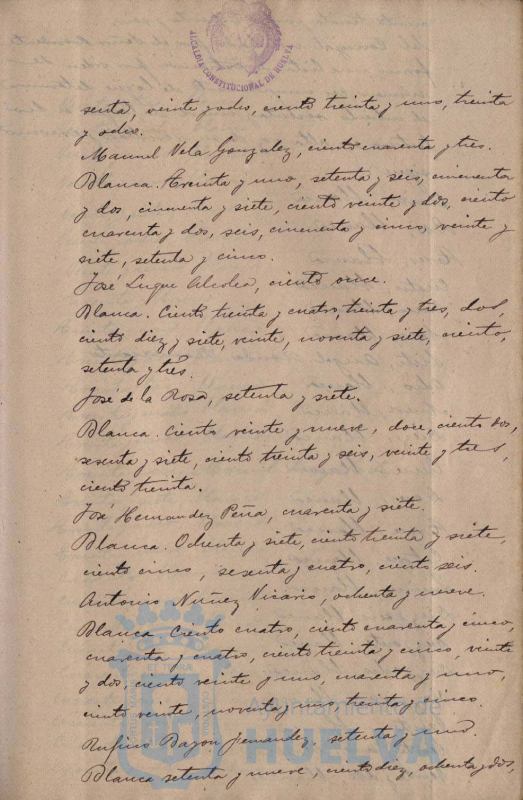 ALCALDIA CONSTITUCIONAL DE HUELVA
senta, veinte y ocho, ciento treinta y uno, treinta
y ocho.
Manuel Vela Gonzalez, ciento cuarenta y tres.
Blanca. Treinta y uno, setenta y seis, cincuenta
y dos, cincuenta y siete, ciento veinte y dos, ciento
cuarenta y dos, seis, cincuenta y cinco, veinte y
siete, setenta y cinco.
José Luque Alcolea, ciento once.
Blanca. Ciento treinta y cuatro, treinta y tres, dos,
ciento diez y siete, veinte, noventa y siete, ciento,
setenta y tres.
José de la Rosa, setenta y siete.
Blanca. Ciento veinte y nueve, doce, ciento dos,
sesenta y siete, ciento treinta y seis, veinte y tres,
ciento treinta.
José Hernandez Peña, cuarenta y siete.
Blanca. Ochenta y siete, ciento treinta y siete,
ciento cinco, sesenta y cuatro, ciento seis.
Antonio Nuñez Vicario, ochenta y nueve.
Blanca. Ciento cuatro, ciento cuarenta y cinco,
cuarenta y cuatro, ciento treinta y cinco, veinte
y dos, ciento veinte y uno, cuarenta y uno,
ciento veinte, noventa y uno, treinta y cinco.
Rufino Bayon Fernandez, setenta y uno
Blanca setenta y nueve, ciento diez, ochenta y dos,
Ayuntamiento de
HUELVA